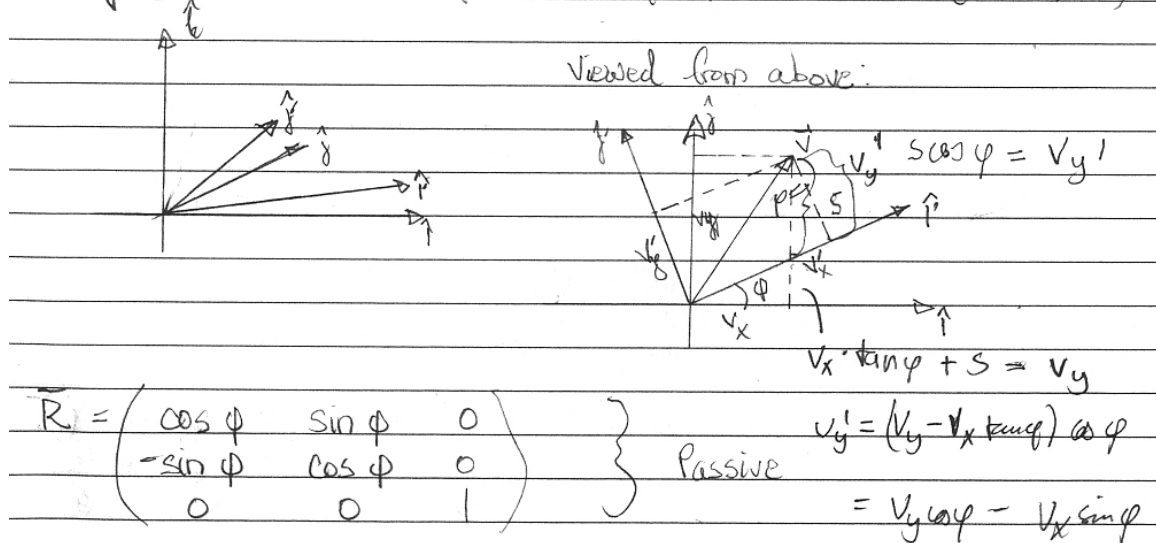 k̂
Viewed from above:
ĵ' ĵ î' î
ĵ' ĵ v⃗ Vy' S cos φ = Vy'
φ S î'
Vy Vy' Vx'
φ Vx î
Vx · tan φ + S = Vy
R̄ = ( cos φ sin φ 0
-sin φ cos φ 0
0 0 1 ) } Passive
Vy' = (Vy - Vx tan φ) cos φ
= Vy cos φ - Vx sin φ